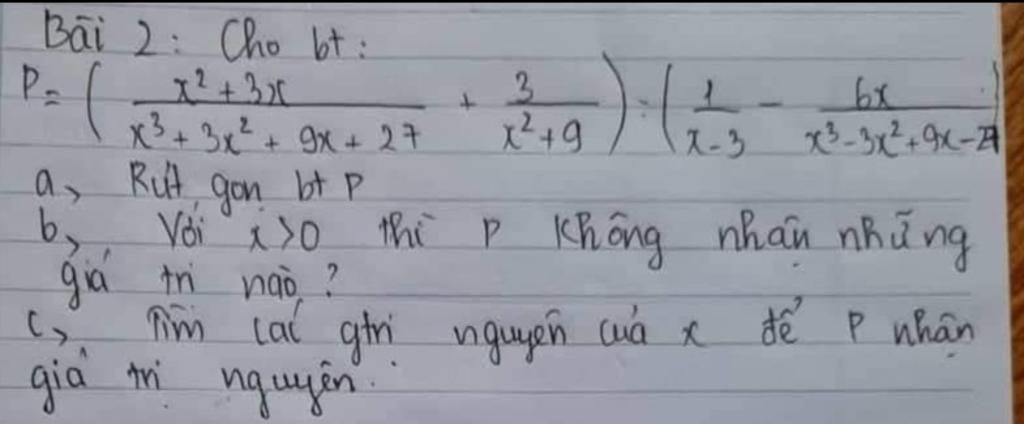 Bài 2: Cho bt:
P = ( x² + 3x / x³ + 3x² + 9x + 27 + 3 / x² + 9 ) : ( 1 / x - 3 - 6x / x³ - 3x² + 9x - 27 )
a, Rút gọn bt P
b, Với x > 0 thì P không nhận những
giá trị nào?
c, Tìm các gtrị nguyên của x để P nhận
giá trị nguyên.